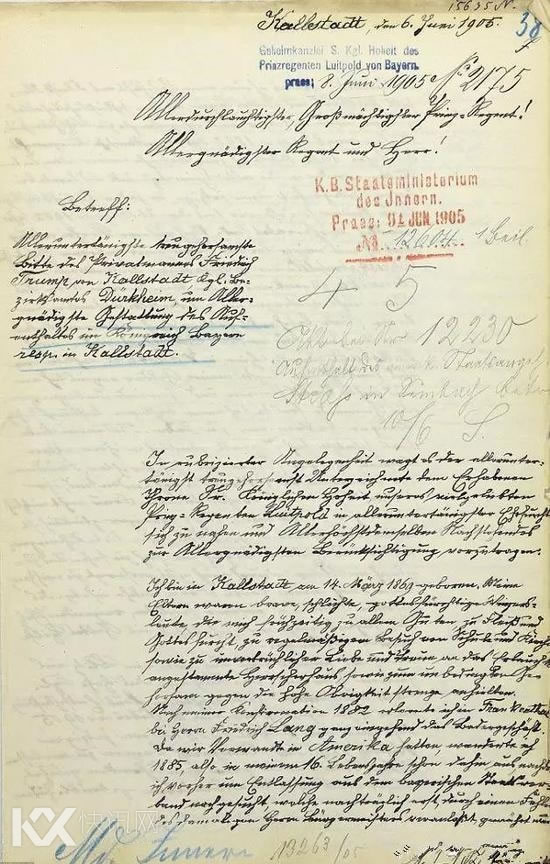 15635 N.
38
Kallstadt, den 6. Juni 1905.
Geheimkanzlei S. Kgl. Hoheit des
Prinzregenten Luitpold von Bayern.
praes: 8. Juni 1905 No 2175
Allerdurchlauchtigster, Großmächtigster Prinz-Regent!
Allergnädigster Regent und Herr!
K.B. Staatsministerium
des Innern.
Praes: JUN. 1905
No. 12604. 1 Beil.
Betreff:
Alleruntertänigste treugehorsamste
Bitte des Privatmannes Friedrich
Trump von Kallstadt Kgl. Be-
zirksamts Dürkheim, um Aller-
gnädigste Gestattung des Auf-
enthaltes im Königreich Bayern
resp. in Kallstadt.
4 5
12230
10/6 S.
In rubrizierter Angelegenheit wagt es der allerunter-
tänigst treugehorsamst Unterzeichnete dem Erhabenen
Throne Sr. Königlichen Hoheit unseres vielgeliebten
Prinz-Regenten Luitpold in alleruntertänigster Ehrfurcht
sich zu nahen und Allerhöchstdemselben Nachstehendes
zur Allergnädigsten Berücksichtigung vorzutragen.
Ich bin in Kallstadt am 14. März 1869 geboren. Meine
Eltern waren brave, schlichte, gottesfürchtige Winzers-
leute, die mich frühzeitig zu allem Guten zu Fleiß und
Gottesfurcht, zu regelmäßigem Besuch von Schule und Kirche
sowie zu unverbrüchlicher Liebe und Treue an das Erlaucht
angestammte Herrscherhaus sowie zum unbedingten Ge-
horsam gegen die hohe Obrigkeit strenge anhielten.
Nach meiner Konfirmation 1882 erlernte ich in Frankenthal
bei Herrn Friedrich Lang ganz eingehend das Badergeschäft.
Da wir Verwandte in Amerika hatten, wanderte ich
1885, also in meinem 16. Lebensjahre schon dahin aus nachdem
ich vorher um Entlassung aus dem bayerischen Staatsver-
band nachgesucht, welche nachträglich erst, durch einen
des damaligen Herrn Bürgermeisters veranlaßt, gewährt
KX 快讯网
Innern
13263/05